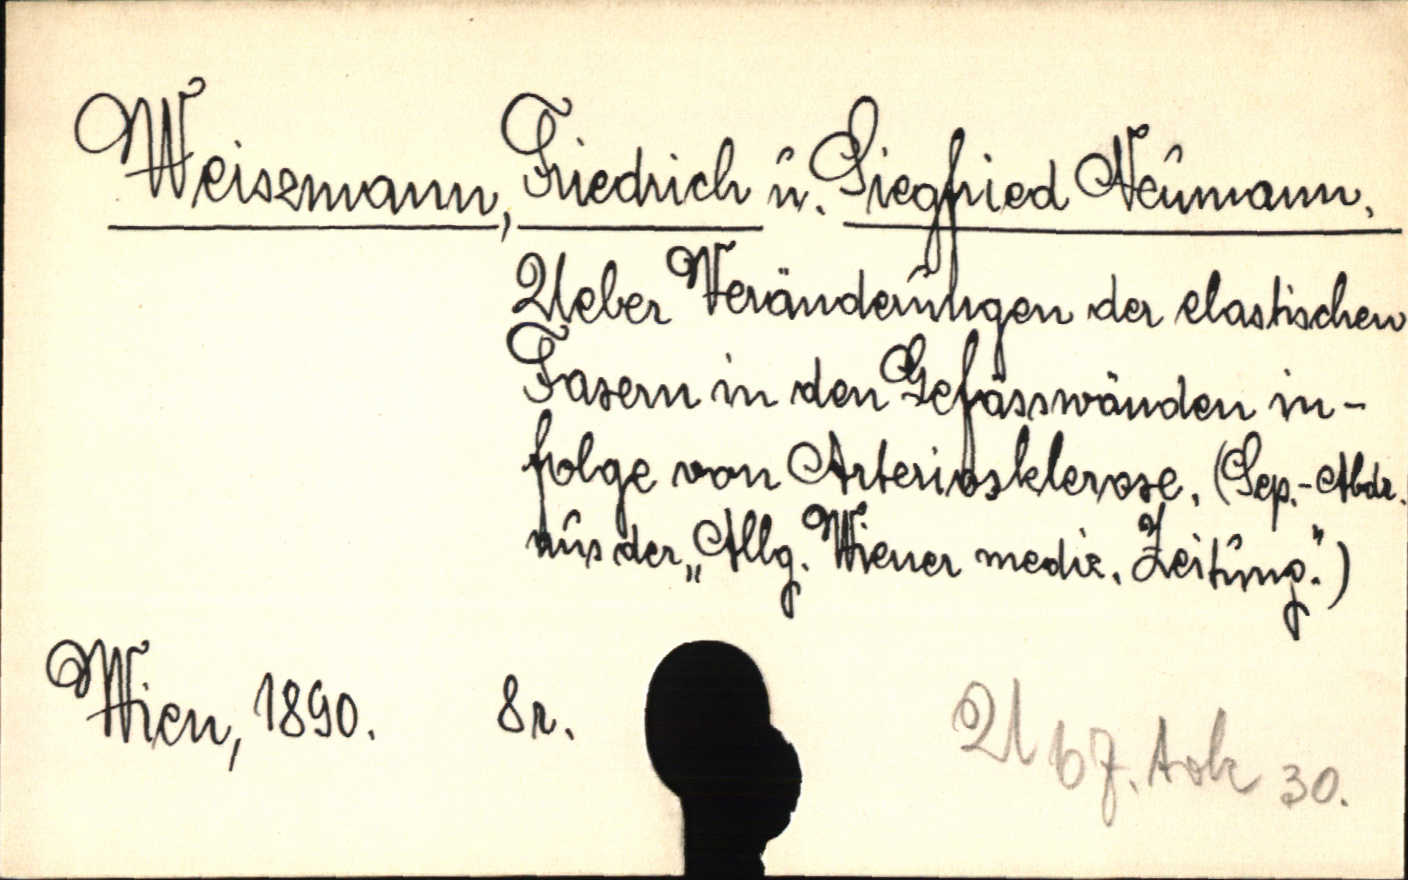 Weiszmann, Friedrich u. Siegfried Neumann.
Ueber Veränderungen der elastischen
Fasern in den Gefässwänden in-
folge von Arteriosklerose. (Sep.-Abdr.
aus der „Allg. Wiener mediz. Zeitung.")
Wien, 1890. 8r.
30.